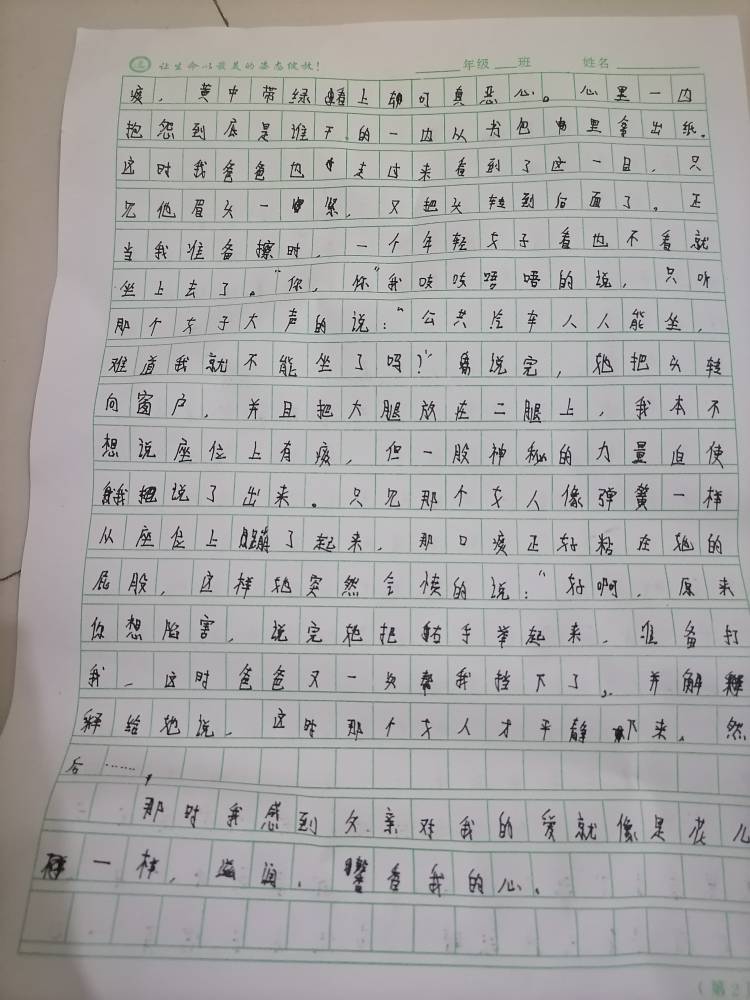 让生命以最美的姿态绽放！ 年级 班 姓名
痰，黄中带绿 上 可真恶心。心里一边
抱怨到底是谁干的一边从书包里拿出纸。
这时我爸爸也走过来看到了这一目，只
见他眉头一紧，又把头转到后面了。正
当我准备擦时，一个年轻女子看也不看就
坐上去了。“你，你”我吱吱唔唔的说，只听
那个女子大声的说：“公共汽车人人能坐，
难道我就不能坐了吗？”说完，她把头转
向窗户，并且把大腿放在二腿上，我本不
想说座位上有痰，但一股神秘的力量迫使
我把说了出来。只见那个女人像弹簧一样
从座位上蹦了起来，那口痰正好粘在她的
屁股，这样她突然会愤的说：“好啊，原来
你想陷害，说完她把右手举起来，准备打
我，这时爸爸又一次帮我挡下了，并解释
释给她说，这时那个女人才平静下来，然
后……，
那时我感到父亲对我的爱就像是花儿
一样，滋润， 香我的心。
（第2